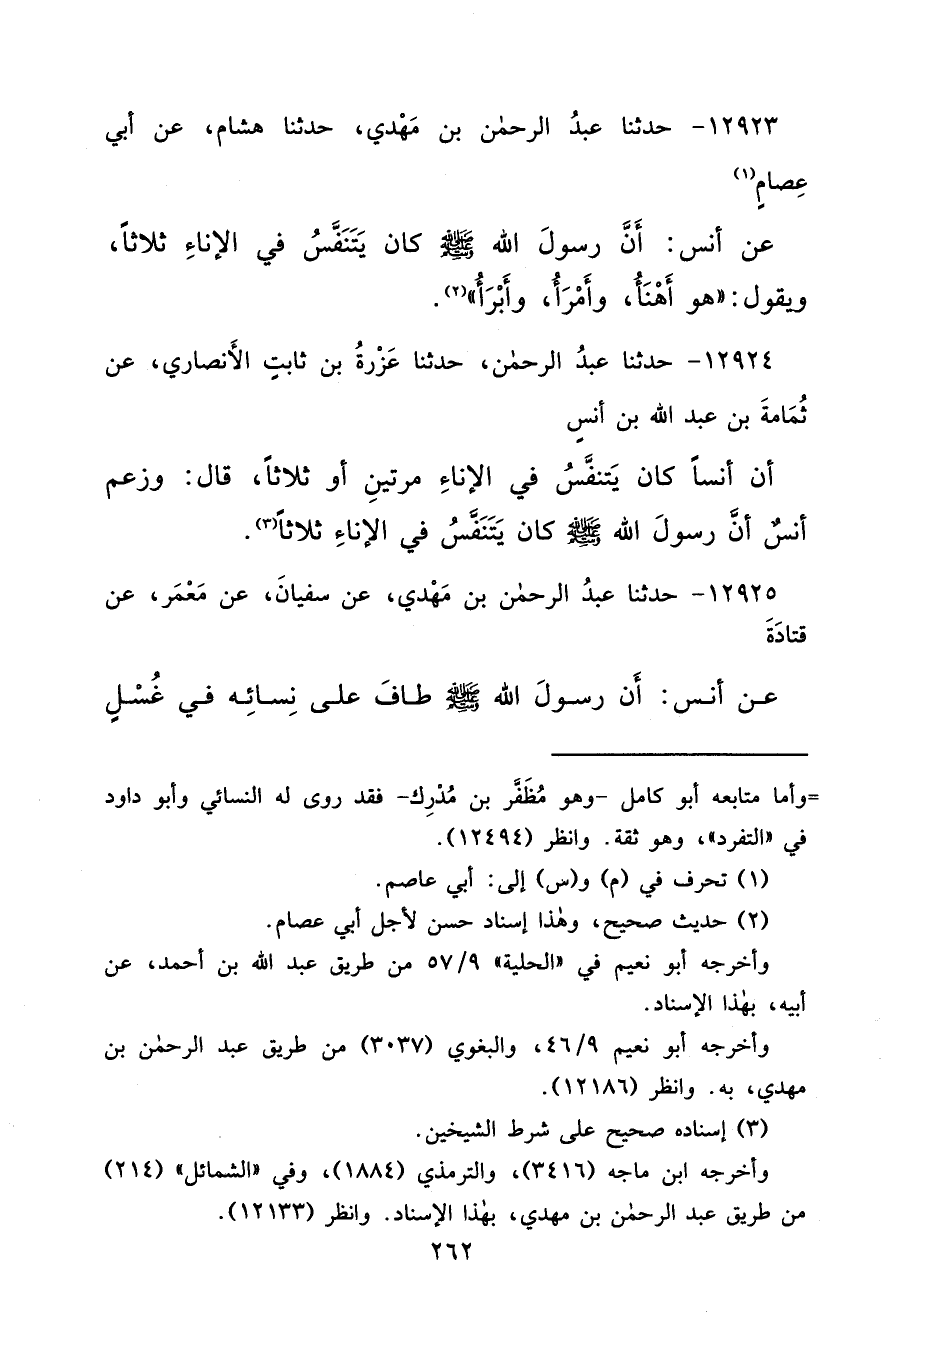 ١٢٩٢٣- حدثنا عبدُ الرحمٰن بن مَهْدي، حدثنا هشام، عن أبي
عِصامٍ(١)
عن أنس: أَنَّ رسولَ الله ﷺ كان يَتَنَفَّسُ في الإناءِ ثلاثاً،
ويقول: «هو أَهْنَأُ، وأَمْرَأُ، وأَبْرَأُ»(٢).
١٢٩٢٤- حدثنا عبدُ الرحمٰن، حدثنا عَزْرةُ بن ثابتٍ الأَنصاري، عن
ثُمَامةَ بن عبد الله بن أنسٍ
أن أنساً كان يَتنفَّسُ في الإناءِ مرتينِ أو ثلاثاً، قال: وزعم
أنسٌ أنَّ رسولَ الله ﷺ كان يَتَنَفَّسُ في الإناءِ ثلاثاً(٣).
١٢٩٢٥- حدثنا عبدُ الرحمٰن بن مَهْدي، عن سفيانَ، عن مَعْمَر، عن
قتادَةَ
عن أنس: أَن رسولَ الله ﷺ طافَ على نِسائِه في غُسْلٍ
=وأما متابعه أبو كامل -وهو مُظَفَّر بن مُدْرِك- فقد روى له النسائي وأبو داود
في «التفرد»، وهو ثقة. وانظر (١٢٤٩٤).
(١) تحرف في (م) و(س) إلى: أبي عاصم.
(٢) حديث صحيح، وهٰذا إسناد حسن لأجل أبي عصام.
وأخرجه أبو نعيم في «الحلية» ٥٧/٩ من طريق عبد الله بن أحمد، عن
أبيه، بهٰذا الإسناد.
وأخرجه أبو نعيم ٤٦/٩، والبغوي (٣٠٣٧) من طريق عبد الرحمٰن بن
مهدي، به. وانظر (١٢١٨٦).
(٣) إسناده صحيح على شرط الشيخين.
وأخرجه ابن ماجه (٣٤١٦)، والترمذي (١٨٨٤)، وفي «الشمائل» (٢١٤)
من طريق عبد الرحمٰن بن مهدي، بهٰذا الإسناد. وانظر (١٢١٣٣).
٢٦٢